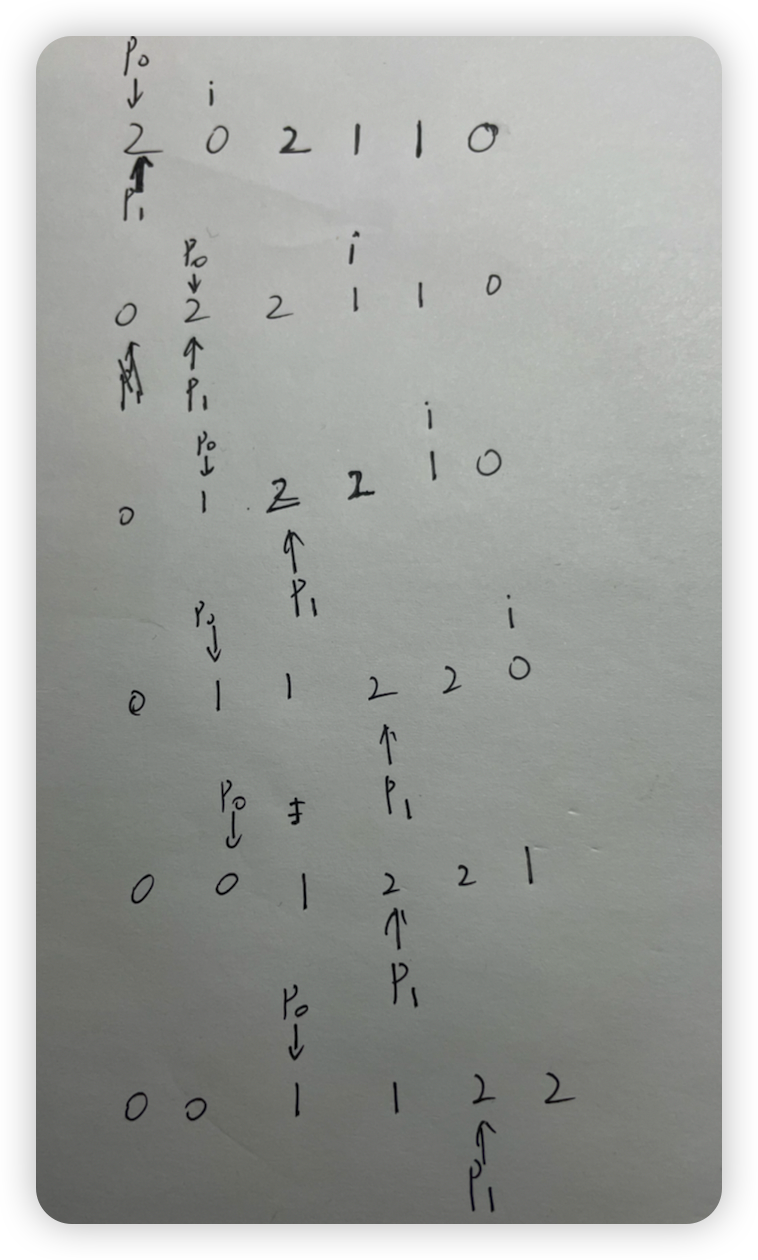 P0
↓ i
2 0 2 1 1 0
↑
P1
P0 i
↓
0 2 2 1 1 0
↑ ↑
P1
i
P0
↓ 1 0
0 1 2 2
↑
P1
P0 i
↓
0 1 1 2 2 0
↑
P0 P1
↓
0 0 1 2 2 1
↑
P1
P0
↓
0 0 1 1 2 2
↑
P1